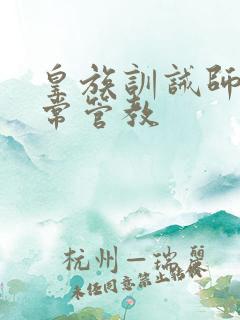 皇族訓誡師
常管教
杭州—瑞麗
未经同意禁止转载